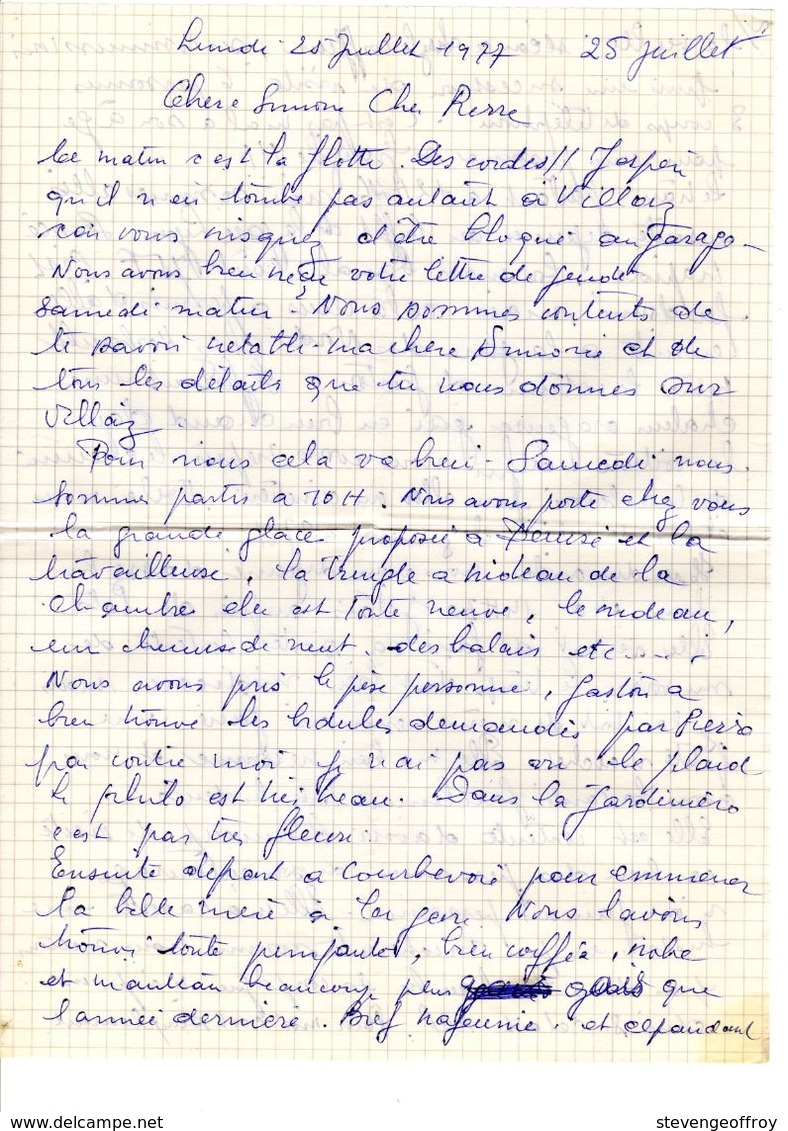 Lundi 25 Juillet 1977 25 juillet
Chere Simone Cher Pierre
Ce matin c est la flotte. Des cordes!! J espere
qu il n en tombe pas autant à Villaiz
car vous risquez d être bloqué au garage -
Nous avons bien reçu votre lettre de jeudi
samedi matin. Nous sommes contents de
te savoir retablie ma chère Simone et de
tous les détails que tu nous donnes sur
Villaiz.
Pour nous cela va bien - Samedi nous
sommes partis a 10 H. Nous avons porté chez vous
la grande glace proposée à Denise et la
travailleuse, la tringle a rideau de la
chambre elle est toute neuve, le rideau,
un chemise de nuit, des balais etc .....
Nous avons pris le pèse personne, Gaston a
bien trouvé les bidules demandés par Pierre
par contre moi j n ai pas vu le plaid
le philo est très beau. Dans la Jardinière
c est pas très fleuri.
Ensuite départ a Courbevoie pour emmener
la belle mère à la gare Nous l avons
trouvé toute pimpante, bien coiffée, robe
et manteau beaucoup plus gais que
l année dernière. Bref rajeunie, et cependant
stevengeoffroy